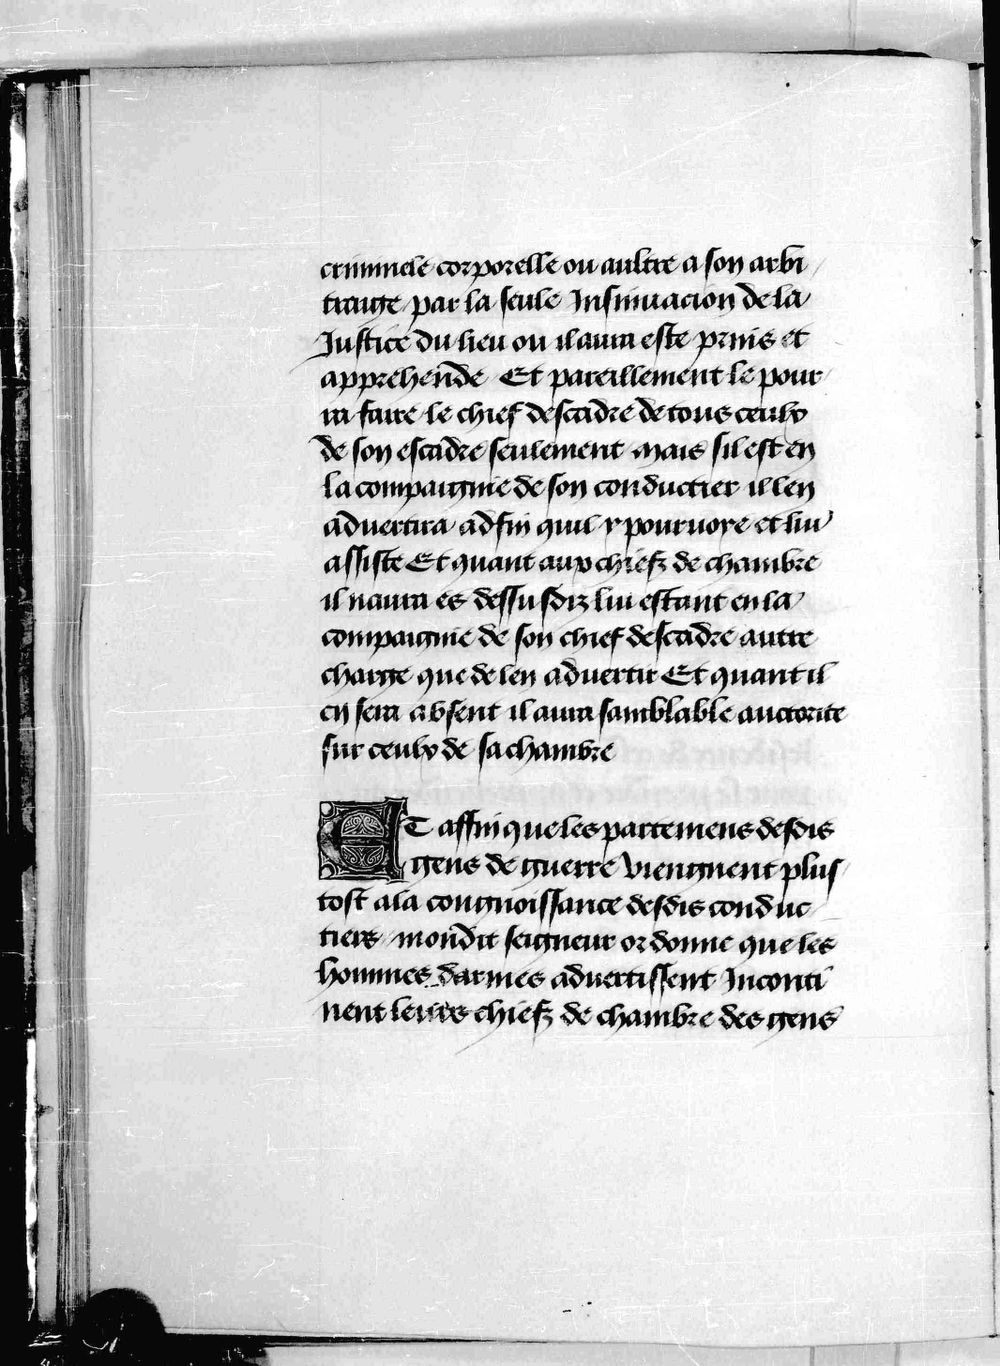 criminele corporelle ou aultre a son arbi
traige par la seule Insinuacion de la
Justice du lieu ou il aura este prins et
apprehende Et pareillement le pour
ra faire le chief descadre de tous ceulx
de son escadre seulement mais sil est en
la compaignie de son conductier il len
advertira adfin quil y pourvoye et lui
assiste Et quant aux chiefz de chambre
il naura es dessusdiz lui estant en la
compaignie de son chief descadre autre
charge que de len advertir Et quant il
en sera absent il aura samblable auctorite
sur ceulx de sa chambre
ET affin que les partemens desdis
gens de guerre viengnent plus
tost a la congnoissance desdis conduc
tiers mondit seigneur ordonne que les
hommes darmes advertissent Inconti
nent leurs chiefz de chambre des gens